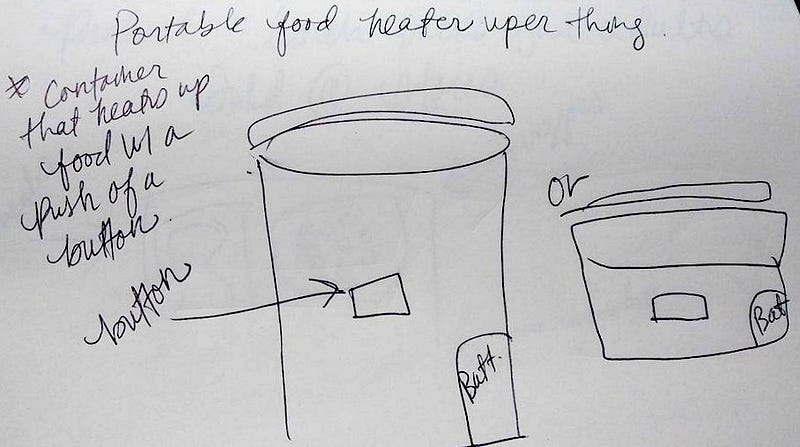 Portable food heater uper thing.
* Container
that heats up
food in a
push of a
button.
button
Batt.
or
Bat